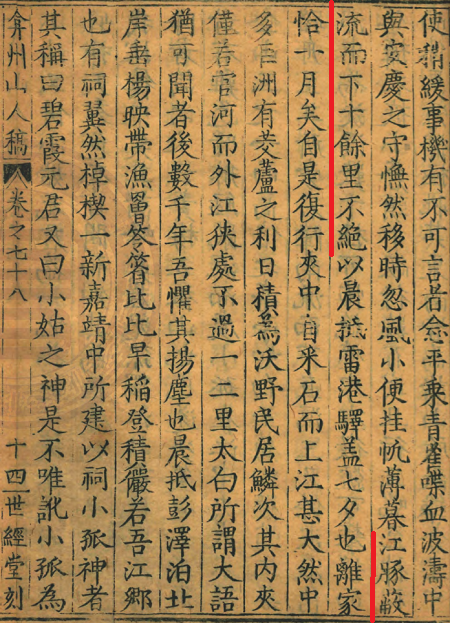 使稍緩事機有不可言者念平乘青雀喋血波濤中
與安慶之守憮然移時忽風小便挂帆薄暮江豚蔽
流而下十餘里不絕以晨抵雷港驛蓋七夕也離家
恰一月矣自是復行夾中自采石而上江甚大然中
多巨洲有茭蘆之利日積為沃野民居鱗次其内夾
僅若官河而外江狹處不過一二里太白所謂大語
猶可聞者後數千年吾懼其揚塵也晨抵彭澤泊北
岸垂楊映帶漁罾笭箵比比早稻登積儼若吾江鄉
也有祠翼然棹楔一新嘉靖中所建以祠小孤神者
其稱曰碧霞元君又曰小姑之神是不唯訛小孤為
弇州山人稿 卷之七十八 十四 世經堂刻